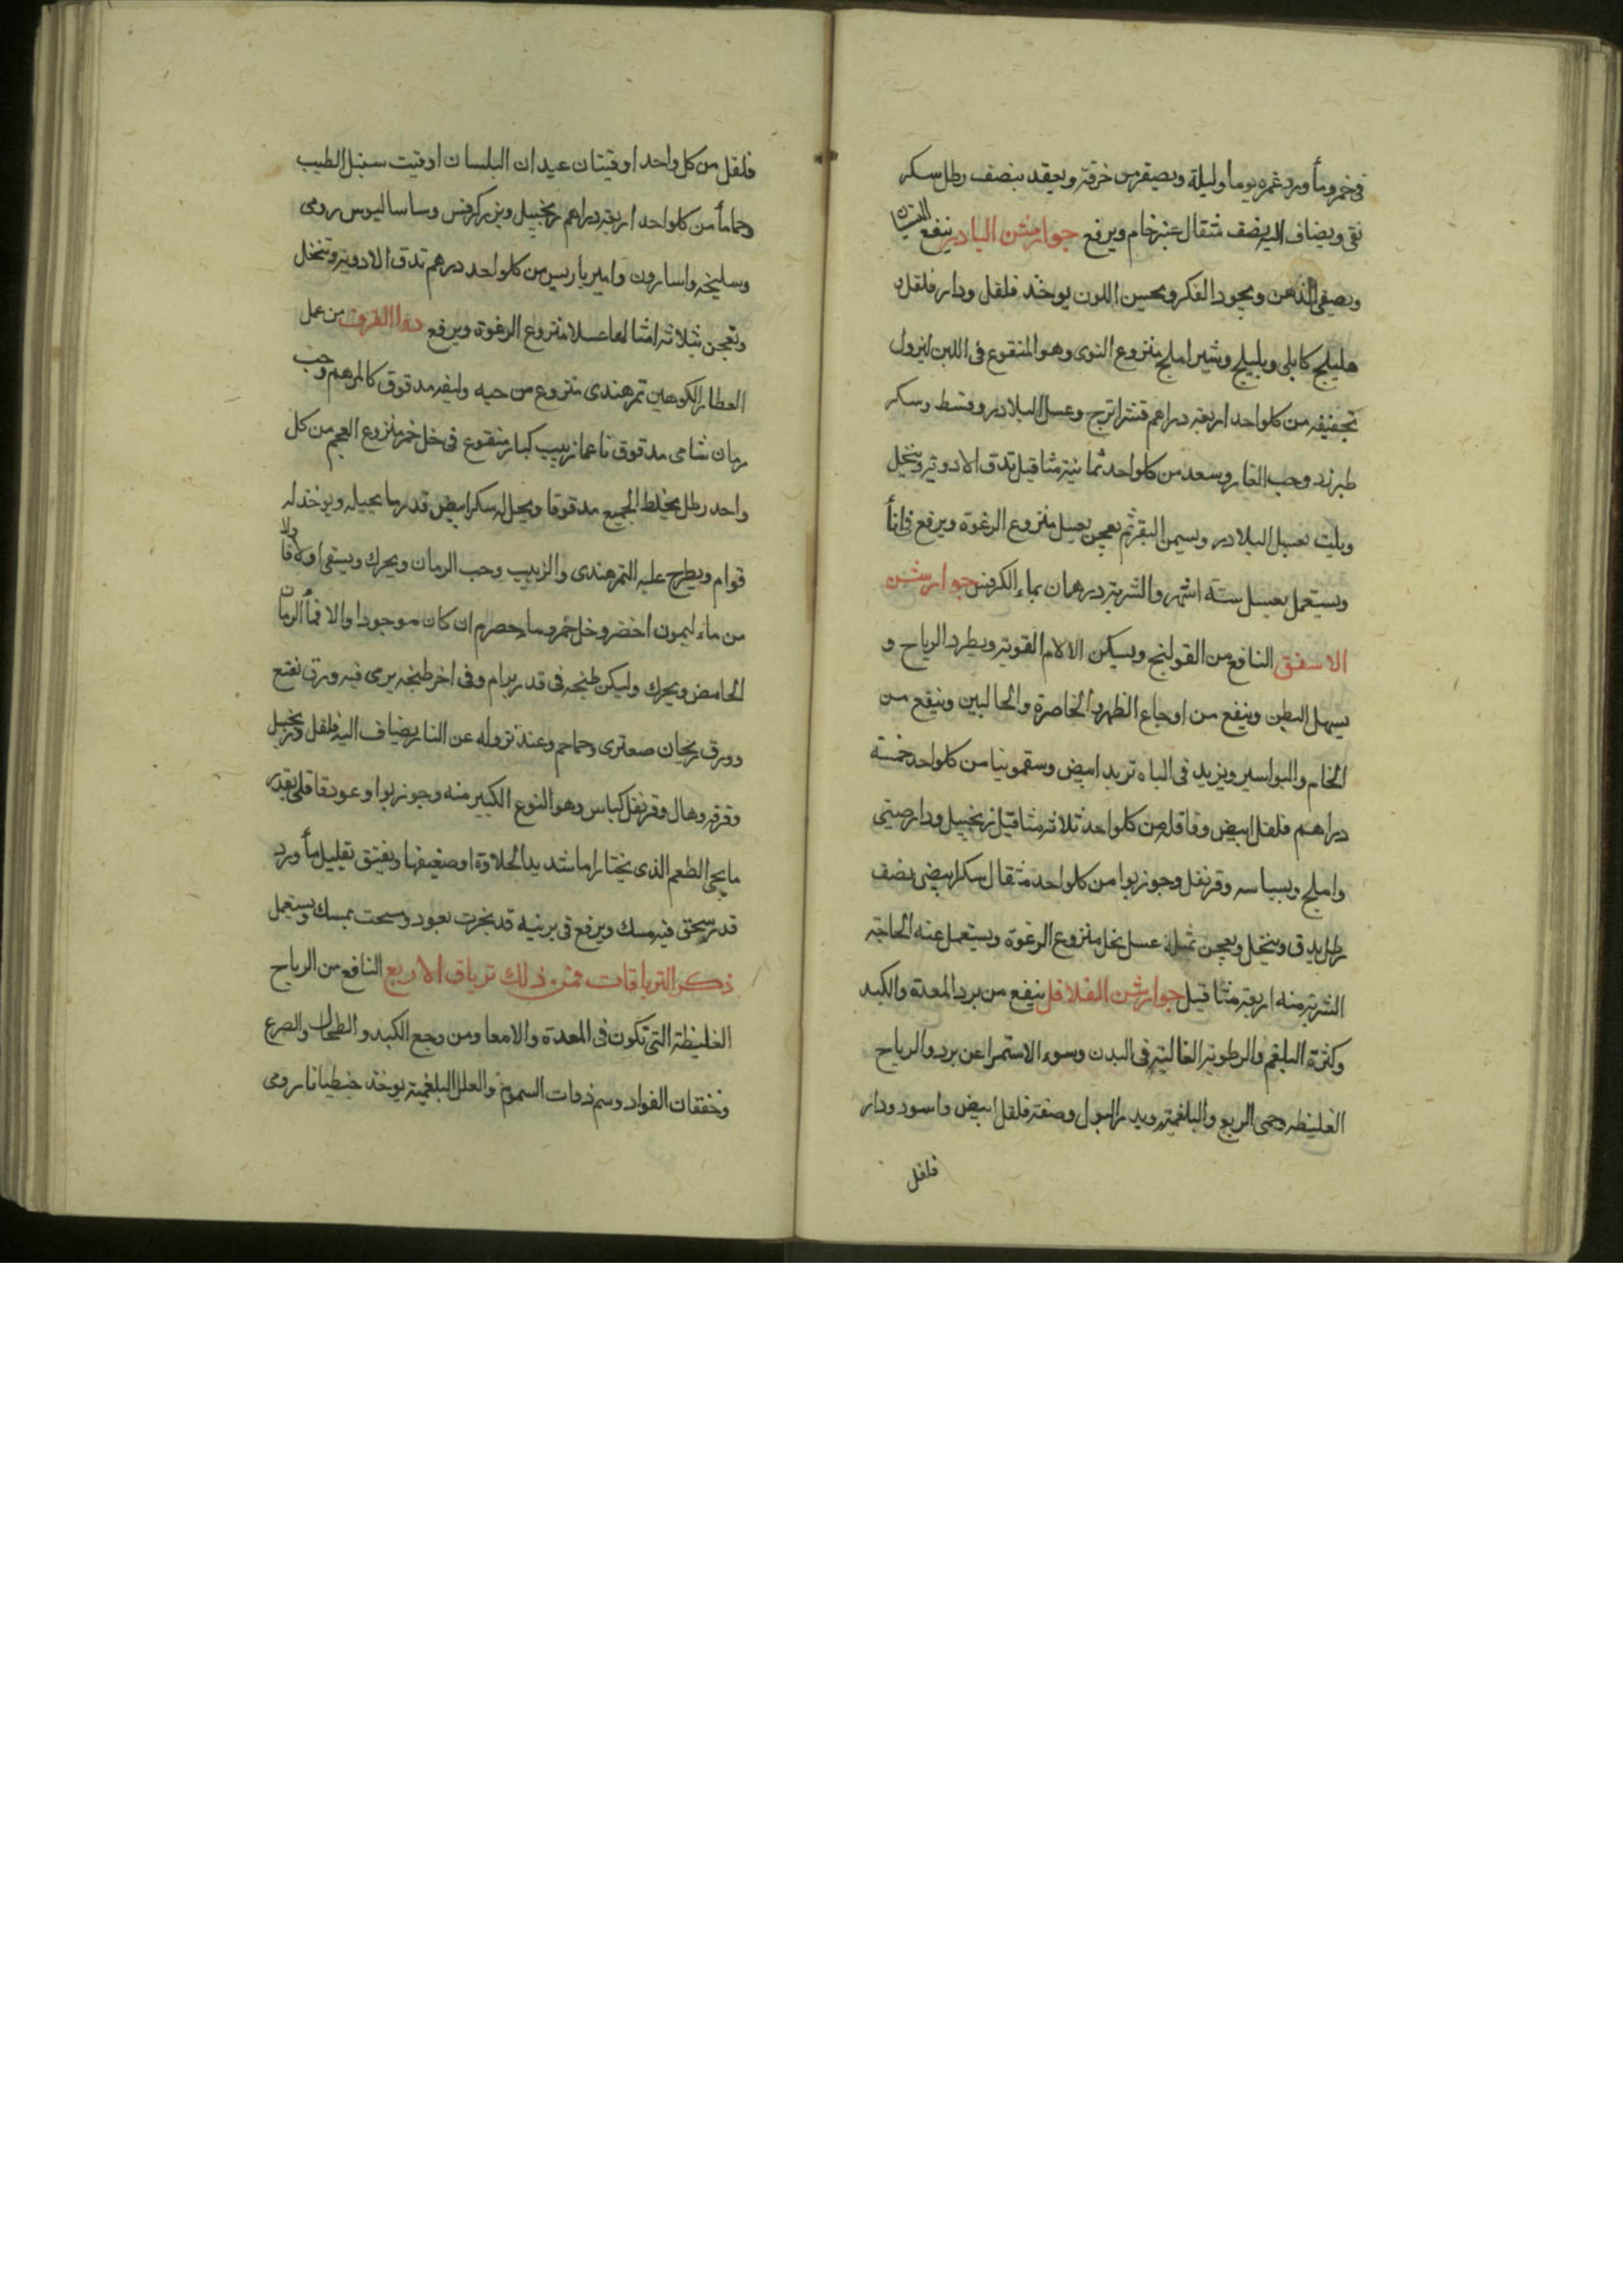 فى خمر ومأ ورد غمره يوما وليلة ويصفى من خرقة ويعقد بنصف رطل سكر
نقى ويضاف اليه نصف مثقال عنبر خام ويرفع جوارشن البلادر ينفع النسيان
ويصفى الذهن ويجود الفكر ويحسن اللون يوخذ فلفل ودار فلفل و
هليلج كابلى وبليلج وشير املج منزوع النوى وهو المنقوع فى اللبن ليزول
تجفيفه من كلواحد اربعة دراهم قشر اترج وعسل البلادر وقسط وسكر
طبرزد وحب الغار وسعد من كلواحد ثمانية مثاقيل تدق الادوية وينخل
ويلت بعسل البلادر وبسمن البقر ثم يعجن بعسل منزوع الرغوة ويرفع فى انأ
ويستعمل بعسل ستة اشهر والشربة درهمان بماء الكرفس جوارشن
الاسفق النافع من القولنج ويسكن الالام القوية ويطرد الرياح و
يسهل البطن وينفع من اوجاع الظهر والخاصرة والحالبين وينفع من
الخام والبواسير ويزيد فى الباه تربد ابيض وسقمونيا من كلواحد خمسة
دراهم فلفل ابيض وقاقله من كلواحد ثلاثة مثاقيل زنجبيل ودارصينى
واملج وبسباسه وقرنفل وجوزبوا من كلواحد مثقال سكر ابيض نصف
رطل يدق وينخل ويعجن بمثله عسل نحل منزوع الرغوة ويستعمل عنه الحاجة
الشربة منه اربعة مثاقيل جوارشن الفلافل ينفع من برد المعدة والكبد
وكثرة البلغم والرطوبة الغالبة فى البدن وسوء الاستمرا عن برد والرياح
الغليظه وحمى الربع والبلغمية ويدر البول وصفته فلفل ابيض واسود ودار
فلفل
فلفل من كل واحد اوقيتان عيدان البلسان اوقيت سنبل الطيب
وحماماً من كلواحد اربعة دراهم زنجبيل وبزر كرفس وساساليوس رومى
وسليخه واسارون وامير باريس من كلواحد درهم تدق الادوية وتنخل
وتعجن بثلاثة امثالها عسلا منزوع الرغوة ويرفع دوا القرف من عمل
العطار الكوهين تمر هندى منزوع من حبه وليفه مدقوق كالمرهم وحب
رمان شامى مدقوق ناعما زبيب كبار منقوع فى خل خمر منزوع العجم من كل
واحد رطل يخلط الجميع مدقوقا ويحل له سكر ابيض قدر ما يحيله ويوخذ له
قوام ويطرح عليه التمر هندى والزبيب وحب الرمان ويحرك ويسقى اولا فاولا
من ماء ليمون اخضر وخل خمر وماء حصرم ان كان موجودا والا فمأ الرمان
الحامض ويحرك وليكن طبخه فى قدر برام وفى اخر طبخه يرمى فيه ورق نعنع
وورق ريحان صعترى وحماحم وعند نزوله عن النار يضاف اليه فلفل وزنجبيل
وقرفه وهال وقرنفل كباس وهو النوع الكبير منه وجوزبوا وعود قاقلى بقدر
ما يجى الطعم الذى يختار اما شديد الحلاوة او ضعيفها ويفتق بقليل مأ ورد
قد سحق فيه مسك ويرفع فى برنيه قد بخرت بعود ومسحت بمسك ويستعمل
ذكر الترياقات فمن ذلك ترياق الاربع النافع من الرياح
الغليظة التى تكون فى المعدة والامعا ومن وجع الكبد والطحال والصرع
وخفقان الفواد وسم ذوات السموم والعلل البلغمية يوخذ جنطيانا رومى